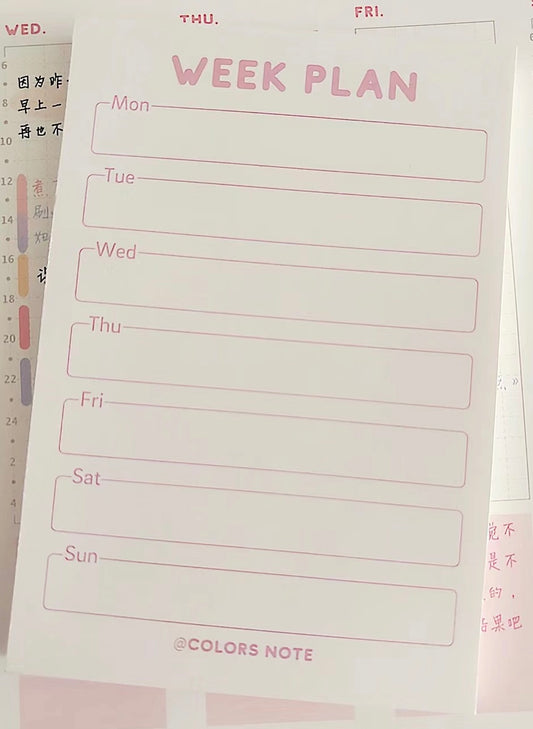 WED.
THU.
FRI.
6
8
10
12
14
16
18
20
22
24
2
4
因为昨
早上一
再也不
煮
刷
WEEK PLAN
Mon
Tue
Wed
Thu
Fri
Sat
Sun
@COLORS NOTE
10
12
觉不
是不
的，
结果吧